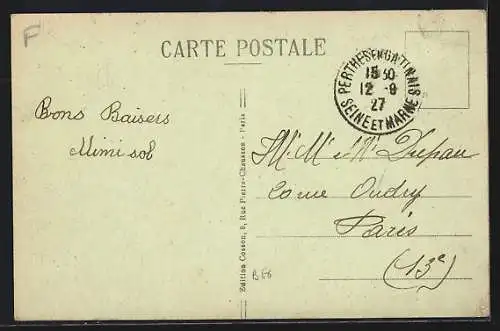 F
CARTE POSTALE
PERTHES EN GATINAIS
15 30
12 - 9
27
SEINE ET MARNE
Bons Baisers
Mimi sol
Edition Cosson, 8, Rue Pierre-Chausson - Paris
Mr Mme Drepau
Oudry
Paris
(13e)
B66